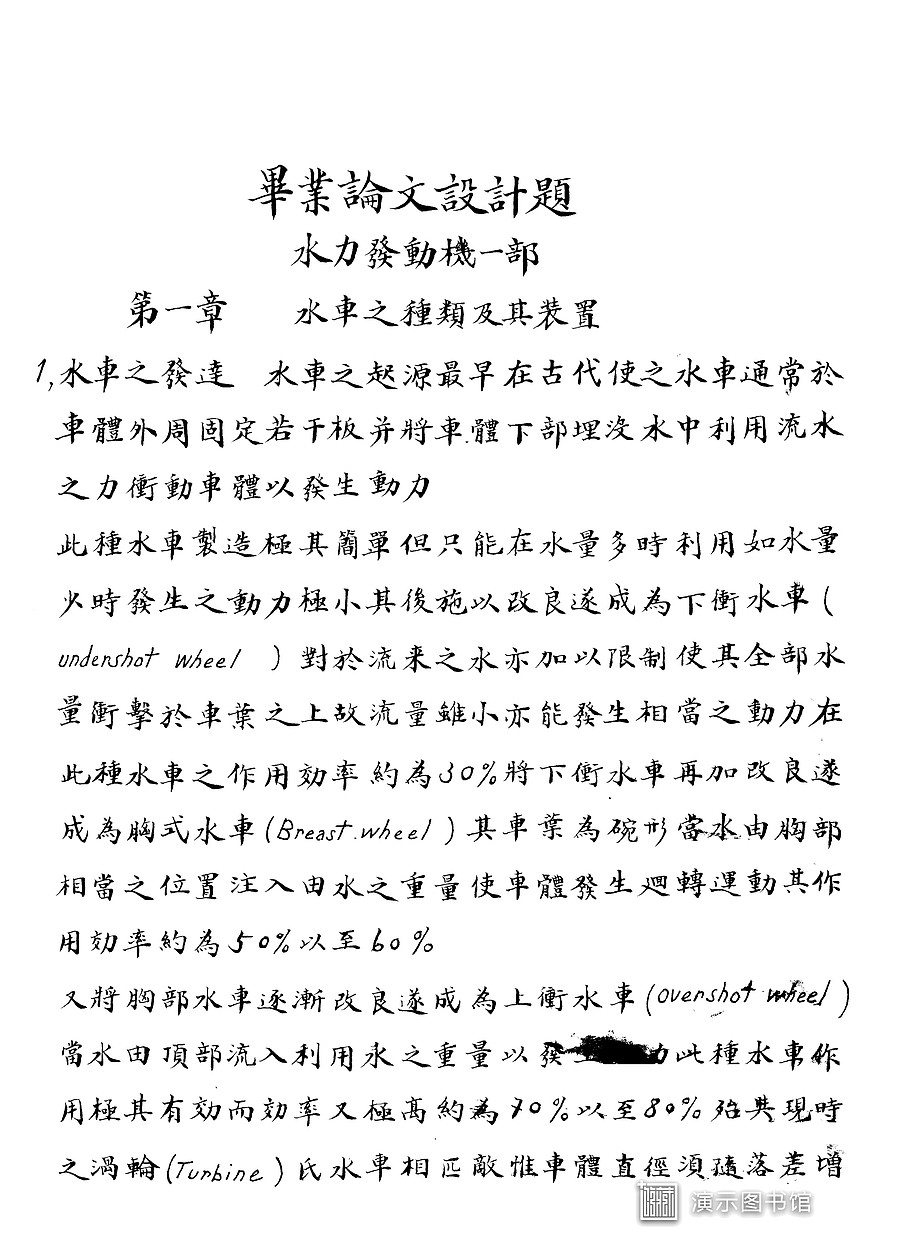 畢業論文設計題
水力發動機一部
第一章 水車之種類及其裝置
1,水車之發達 水車之起源最早在古代使之水車通常於
車體外周固定若干板并將車體下部埋沒水中利用流水
之力衝動車體以發生動力
此種水車製造極其簡單但只能在水量多時利用如水量
少時發生之動力極小其後施以改良遂成為下衝水車(
undershot wheel )對於流来之水亦加以限制使其全部水
量衝擊於車葉之上故流量雖小亦能發生相當之動力在
此種水車之作用効率約為30%將下衝水車再加改良遂
成為胸式水車(Breast wheel)其車葉為碗形當水由胸部
相當之位置注入由水之重量使車體發生廻轉運動其作
用効率約為50%以至60%
又將胸部水車逐漸改良遂成為上衝水車(overshot wheel)
當水由頂部流入利用水之重量以發力此種水車作
用極其有効而効率又極高約為70%以至80%殆與現時
之渦輪(Turbine)氏水車相匹敵惟車體直徑須隨落差增
演示图书馆